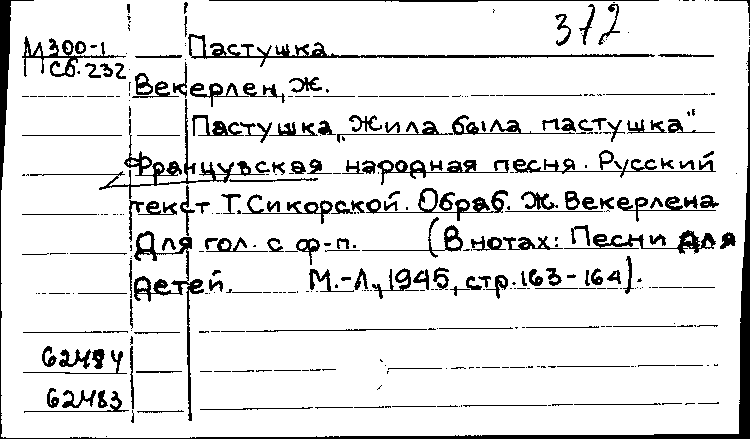 372
М 300-1 Пастушка.
Сб. 232
Векерлен, Ж.
Пастушка „Жила была пастушка".
Французская народная песня. Русский
текст Т. Сикорской. Обраб. Ж. Векерлена
Для гол. с ф-п. (В нотах: Песни для
детей. М.-Л., 1945, стр. 163-164).
62484
62483